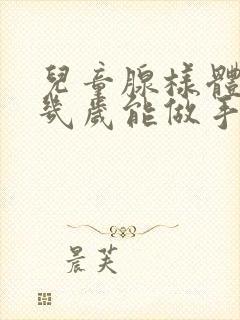 兒童腺樣體
幾歲能做手
晨芙